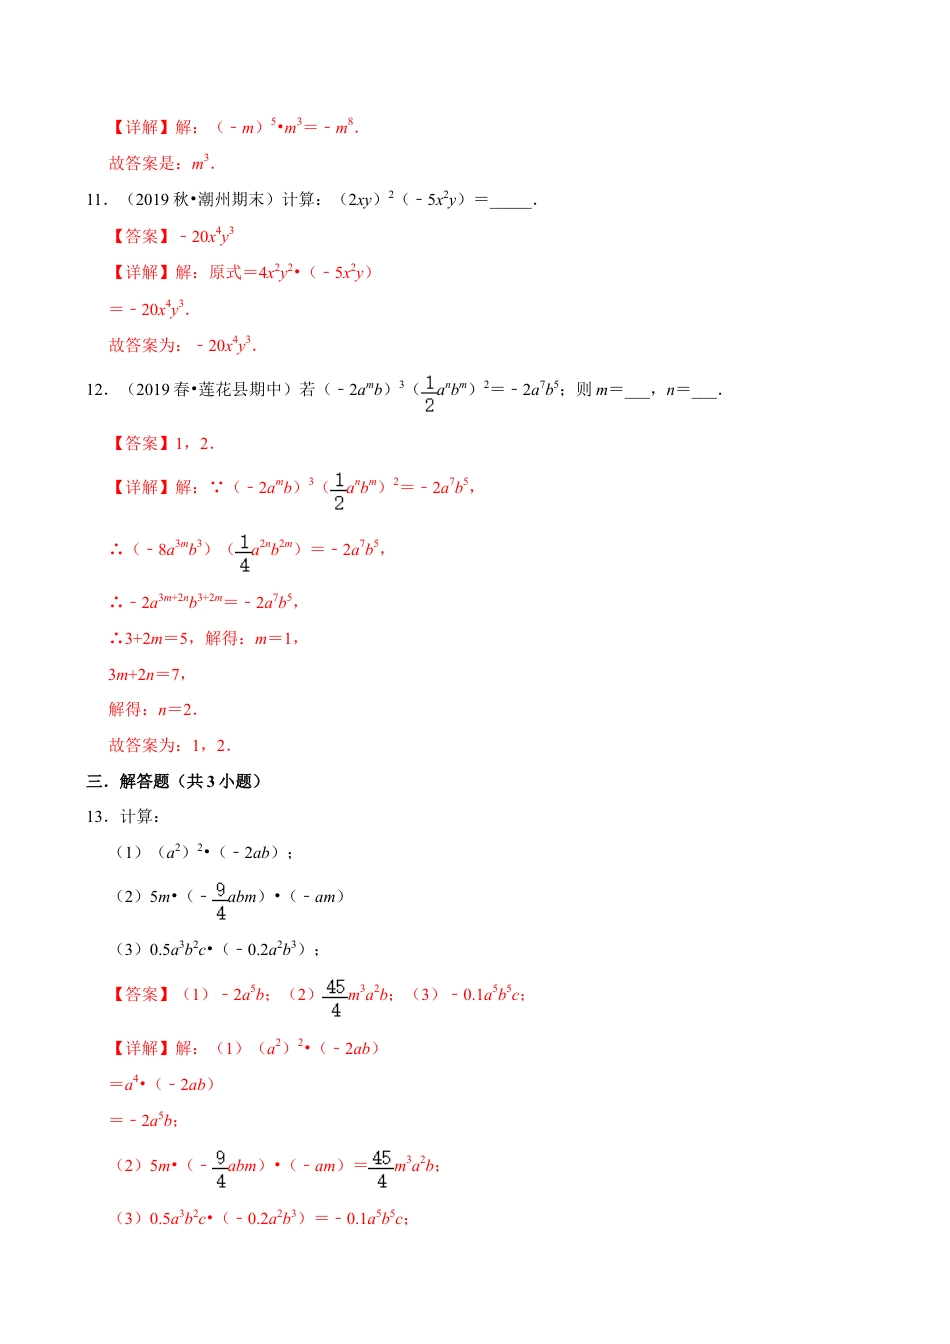 【详解】解：（﹣m）⁵•m³＝﹣m⁸．
故答案是：m³．
11．（2019 秋•潮州期末）计算：（2xy）²（﹣5x²y）＝_____．
【答案】﹣20x⁴y³
【详解】解：原式＝4x²y²•（﹣5x²y）
＝﹣20x⁴y³．
故答案为：﹣20x⁴y³．
12．（2019 春•莲花县期中）若（﹣2aᵐb）³（1/2aⁿbᵐ）²＝﹣2a⁷b⁵；则 m＝___，n＝___．
【答案】1，2．
【详解】解：∵（﹣2aᵐb）³（1/2aⁿbᵐ）²＝﹣2a⁷b⁵，
∴（﹣8a³ᵐb³）（1/4a²ⁿb²ᵐ）＝﹣2a⁷b⁵，
∴﹣2a³ᵐ⁺²ⁿb³⁺²ᵐ＝﹣2a⁷b⁵，
∴3+2m＝5，解得：m＝1，
3m+2n＝7，
解得：n＝2．
故答案为：1，2．
三．解答题（共 3 小题）
13．计算：
（1）（a²）²•（﹣2ab）；
（2）5m•（﹣9/4abm）•（﹣am）
（3）0.5a³b²c•（﹣0.2a²b³）；
【答案】（1）﹣2a⁵b；（2）45/4m³a²b；（3）﹣0.1a⁵b⁵c；
【详解】解：（1）（a²）²•（﹣2ab）
＝a⁴•（﹣2ab）
＝﹣2a⁵b；
（2）5m•（﹣9/4abm）•（﹣am）＝45/4m³a²b；
（3）0.5a³b²c•（﹣0.2a²b³）＝﹣0.1a⁵b⁵c；